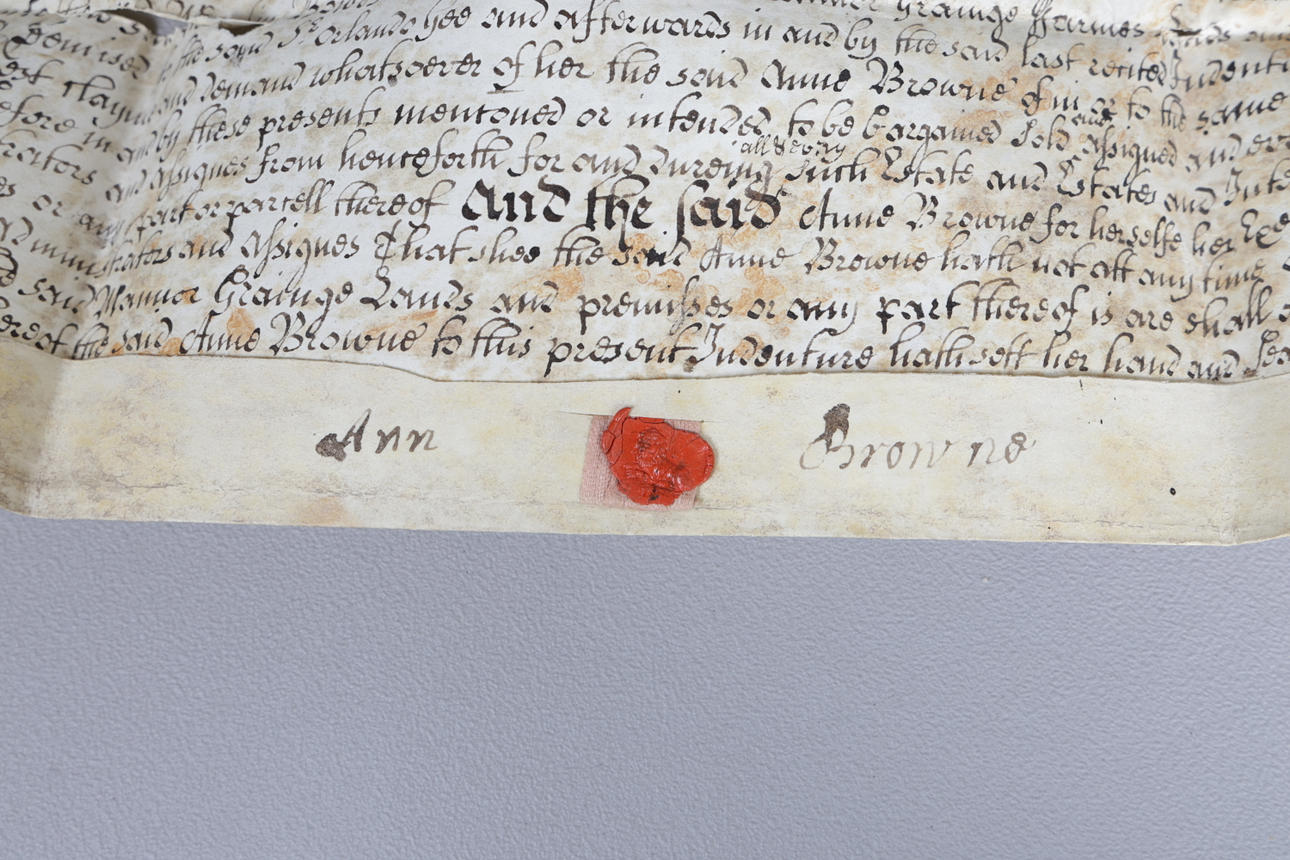 Grainge Farmes
demised to the sayd Sr. Orlando Gee and afterwards in and by the said last recited Indent
Clayme and demand whatsoever of her the said Anne Browne of in or to the same
fore in and by these presents mentoned or intended to be bargained sold and assigned and
trators and assignes from henceforth for and dureing all & every such Estate and Estates and Inte
or any part or parcell thereof And the said Anne Browne for herselfe her Exe
administrators and assignes That shee the said Anne Browne hath not att any time
said Mannor Grainge Lands and premisses or any part thereof is are shall
ereof the said Anne Browne to this present Indenture hath sett her hand and Sea
Ann Browne